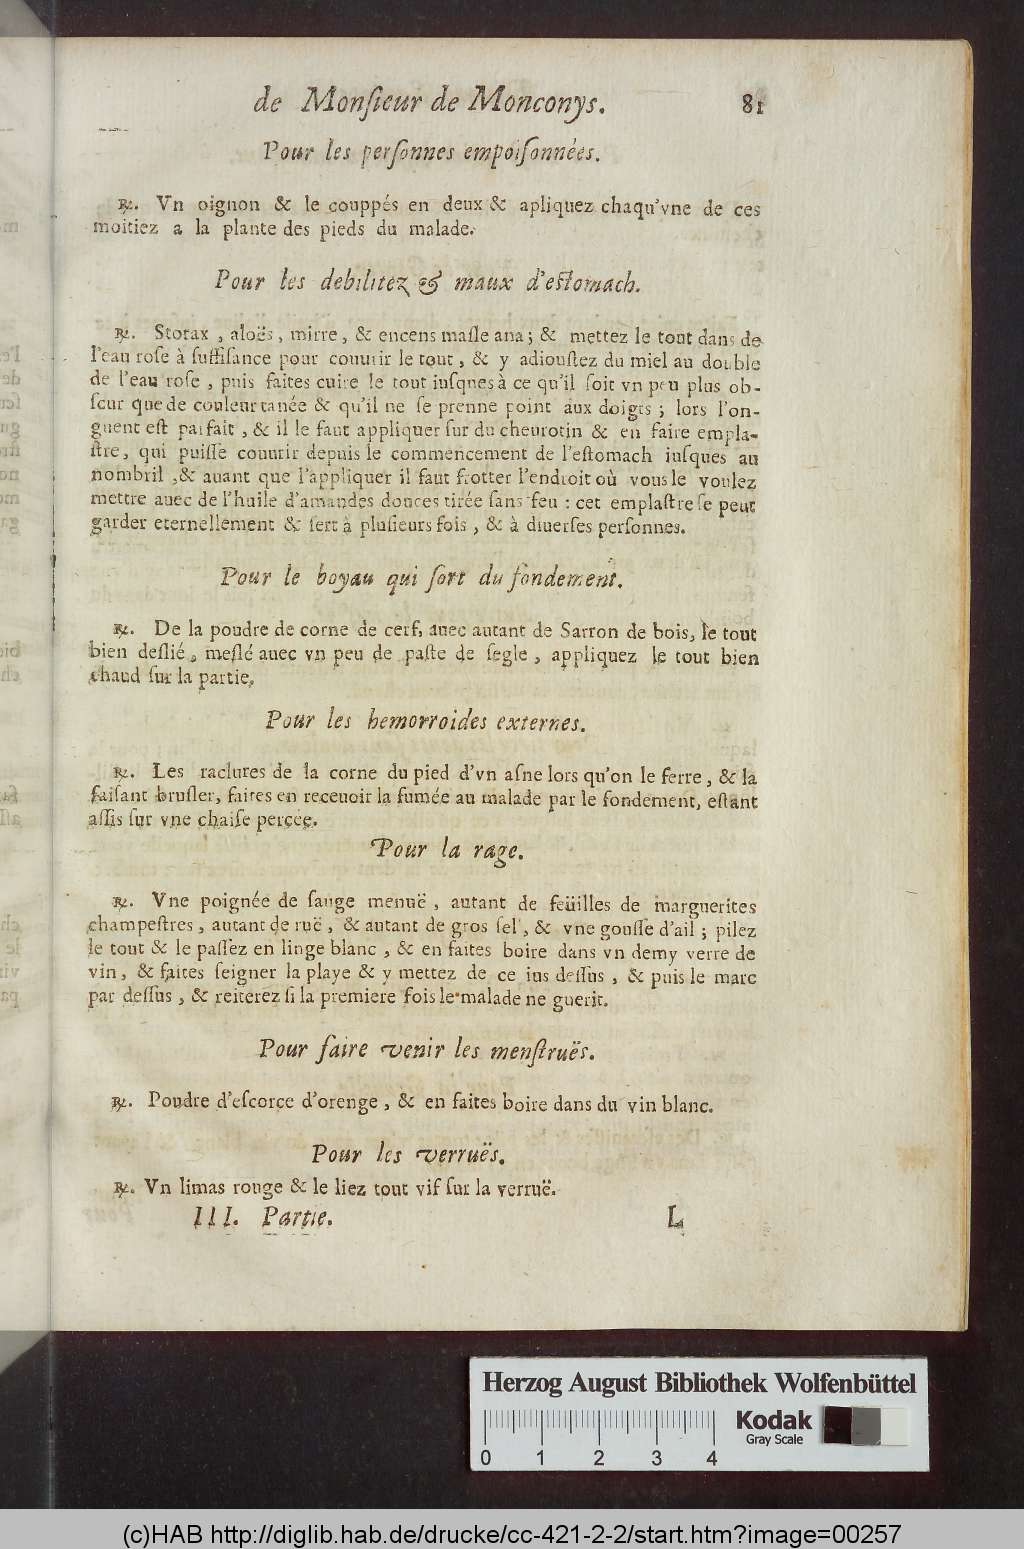 de Monſieur de Monconys. 81
Pour les perſonnes empoiſonnées.
℞. Vn oignon & le couppés en deux & apliquez chaqu'vne de ces
moitiez a la plante des pieds du malade.
Pour les debilitez & maux d'eſtomach.
℞. Storax, aloës, mirre, & encens maſle ana; & mettez le tout dans de
l'eau roſe à ſuffiſance pour couurir le tout, & y adiouſtez du miel au double
de l'eau roſe, puis faites cuire le tout iuſques à ce qu'il ſoit vn peu plus ob-
ſcur que de couleur tanée & qu'il ne ſe prenne point aux doigts; lors l'on-
guent eſt parfait, & il le faut appliquer ſur du cheurotin & en faire empla-
ſtre, qui puiſſe couurir depuis le commencement de l'eſtomach iuſques au
nombril, & auant que l'appliquer il faut frotter l'endroit où vous le voulez
mettre auec de l'huile d'amandes douces tirée ſans feu : cet emplaſtre ſe peut
garder eternellement & ſert à pluſieurs fois, & à diuerſes perſonnes.
Pour le boyau qui ſort du fondement.
℞. De la poudre de corne de cerf, auec autant de Sarron de bois, le tout
bien deſlié, meſlé auec vn peu de paſte de ſegle, appliquez le tout bien
chaud ſur la partie.
Pour les hemorroides externes.
℞. Les raclures de la corne du pied d'vn aſne lors qu'on le ferre, & la
faiſant bruſler, faites en receuoir la fumée au malade par le fondement, eſtant
aſſis ſur vne chaiſe percée.
Pour la rage.
℞. Vne poignée de ſauge menuë, autant de feüilles de marguerites
champeſtres, autant de ruë, & autant de gros ſel, & vne gouſſe d'ail; pilez
le tout & le paſſez en linge blanc, & en faites boire dans vn demy verre de
vin, & faites ſeigner la playe & y mettez de ce ius deſſus, & puis le marc
par deſſus, & reiterez ſi la premiere fois le malade ne guerit.
Pour faire venir les menſtruës.
℞. Poudre d'eſcorce d'orenge, & en faites boire dans du vin blanc.
Pour les verruës.
℞. Vn limas rouge & le liez tout vif ſur la verruë.
III. Partie. L
Herzog August Bibliothek Wolfenbüttel
Kodak
Gray Scale
0 1 2 3 4
(c)HAB http://diglib.hab.de/drucke/cc-421-2-2/start.htm?image=00257